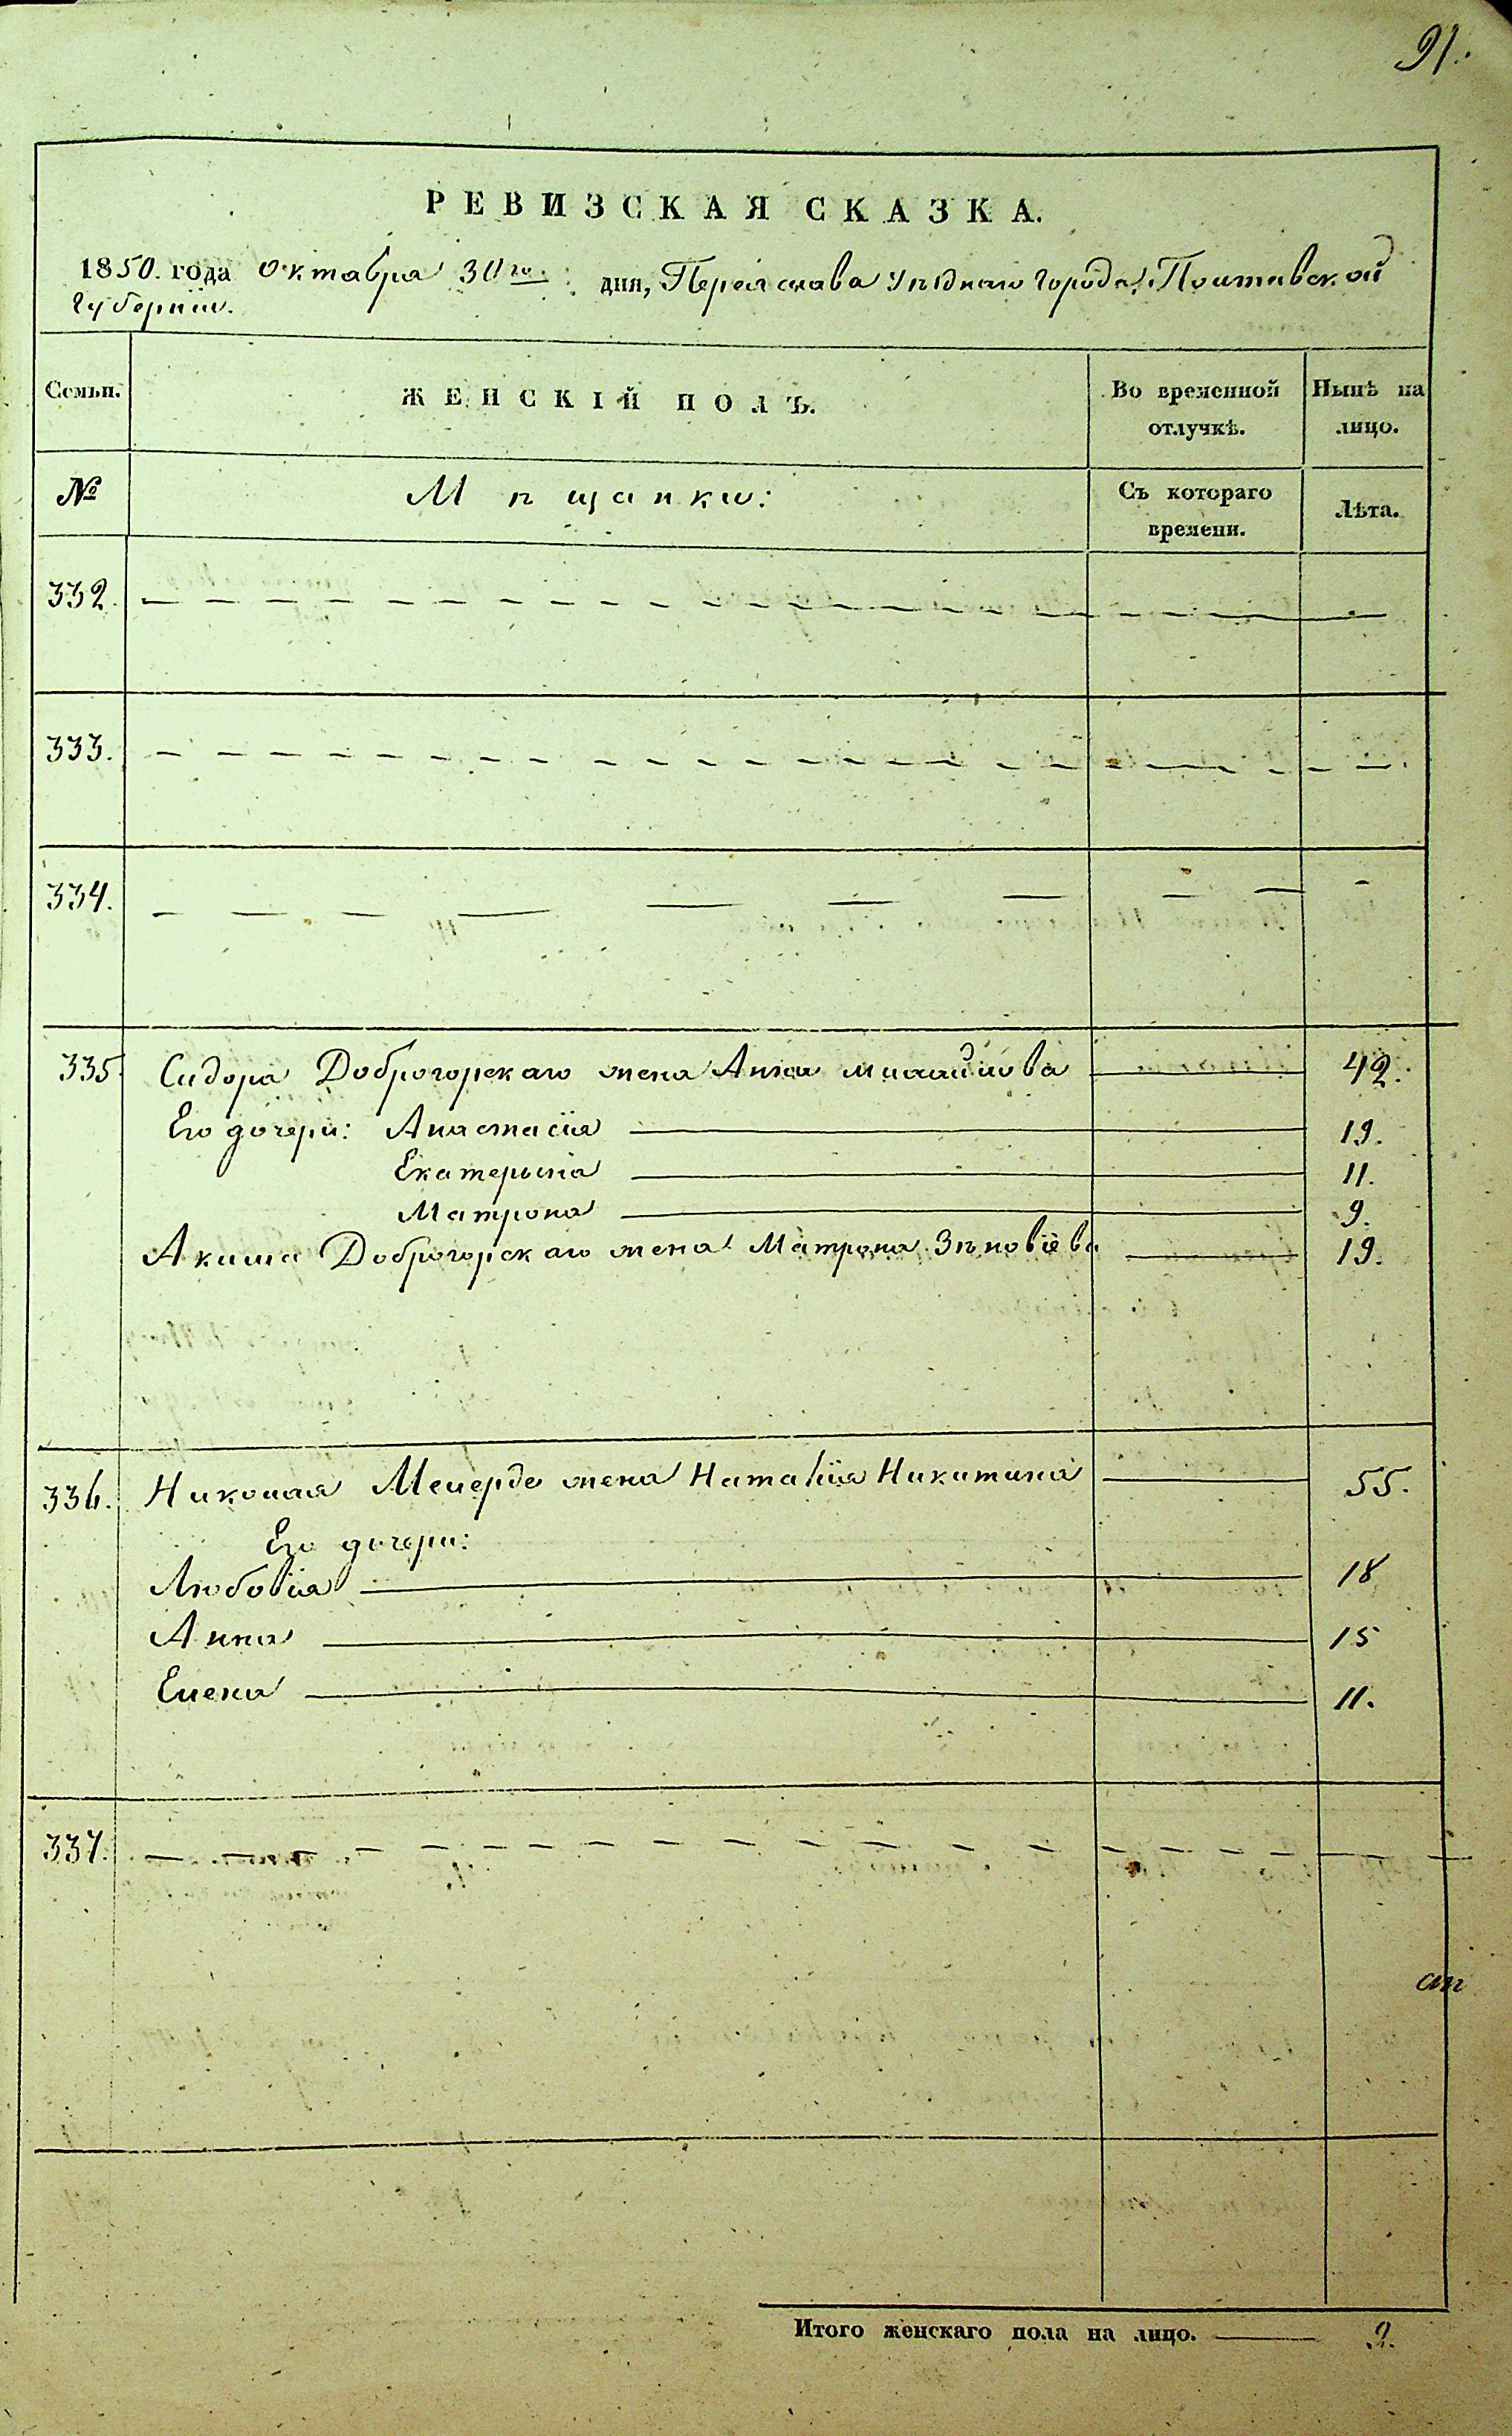 91.
РЕВИЗСКАЯ СКАЗКА.
1850. года Октабря 30го. дня, Переяслава Уѣзднаго города, Полтавской
Губерніи.
Семьи. ЖЕНСКІЙ ПОЛЪ. Во временной отлучкѣ. Нынѣ на лицо.
№ Мѣщанки: Съ котораго времени. Лѣта.
332.
333.
334.
335. Сидора Доброгорскаго жена Анна 42.
Его дочери: Анастасія 19.
Екатерына 11.
Матрона 9.
Акима Доброгорскаго жена Матрона Зѣновіева 19.
336. Николая жена Наталія Никитина 55.
Его дочери:
Любовія 18
Анна 15
Елена 11.
337.
Итого женскаго пола на лицо. 9.